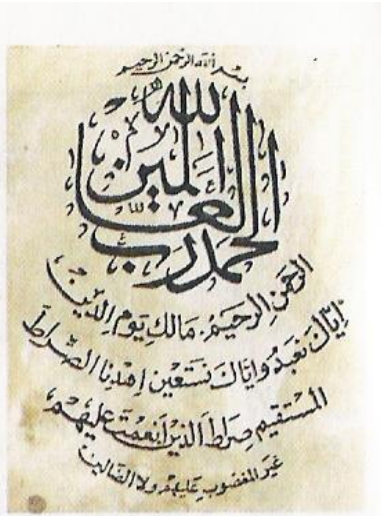 بسم الله الرحمن الرحيم
الحمد لله رب العالمين
الرحمن الرحيم. مالك يوم الدين
إياك نعبد وإياك نستعين اهدنا الصراط
المستقيم صراط الذين أنعمت عليهم
غير المغضوب عليهم ولا الضالين